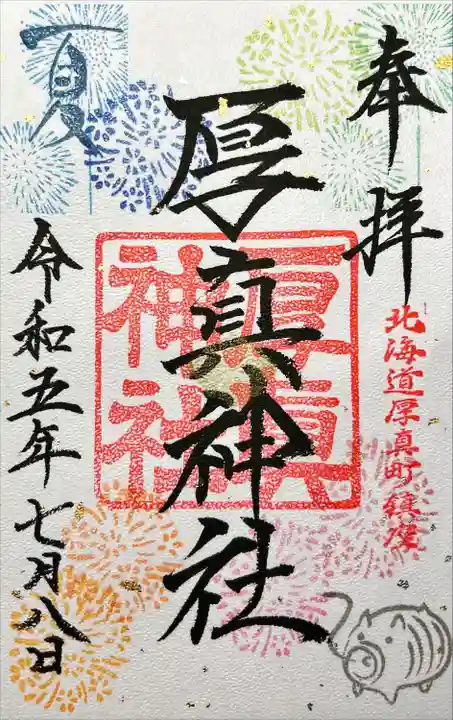 奉拝
北海道厚真町鎮座
厚真神社
厚真神社
夏
令和五年七月八日